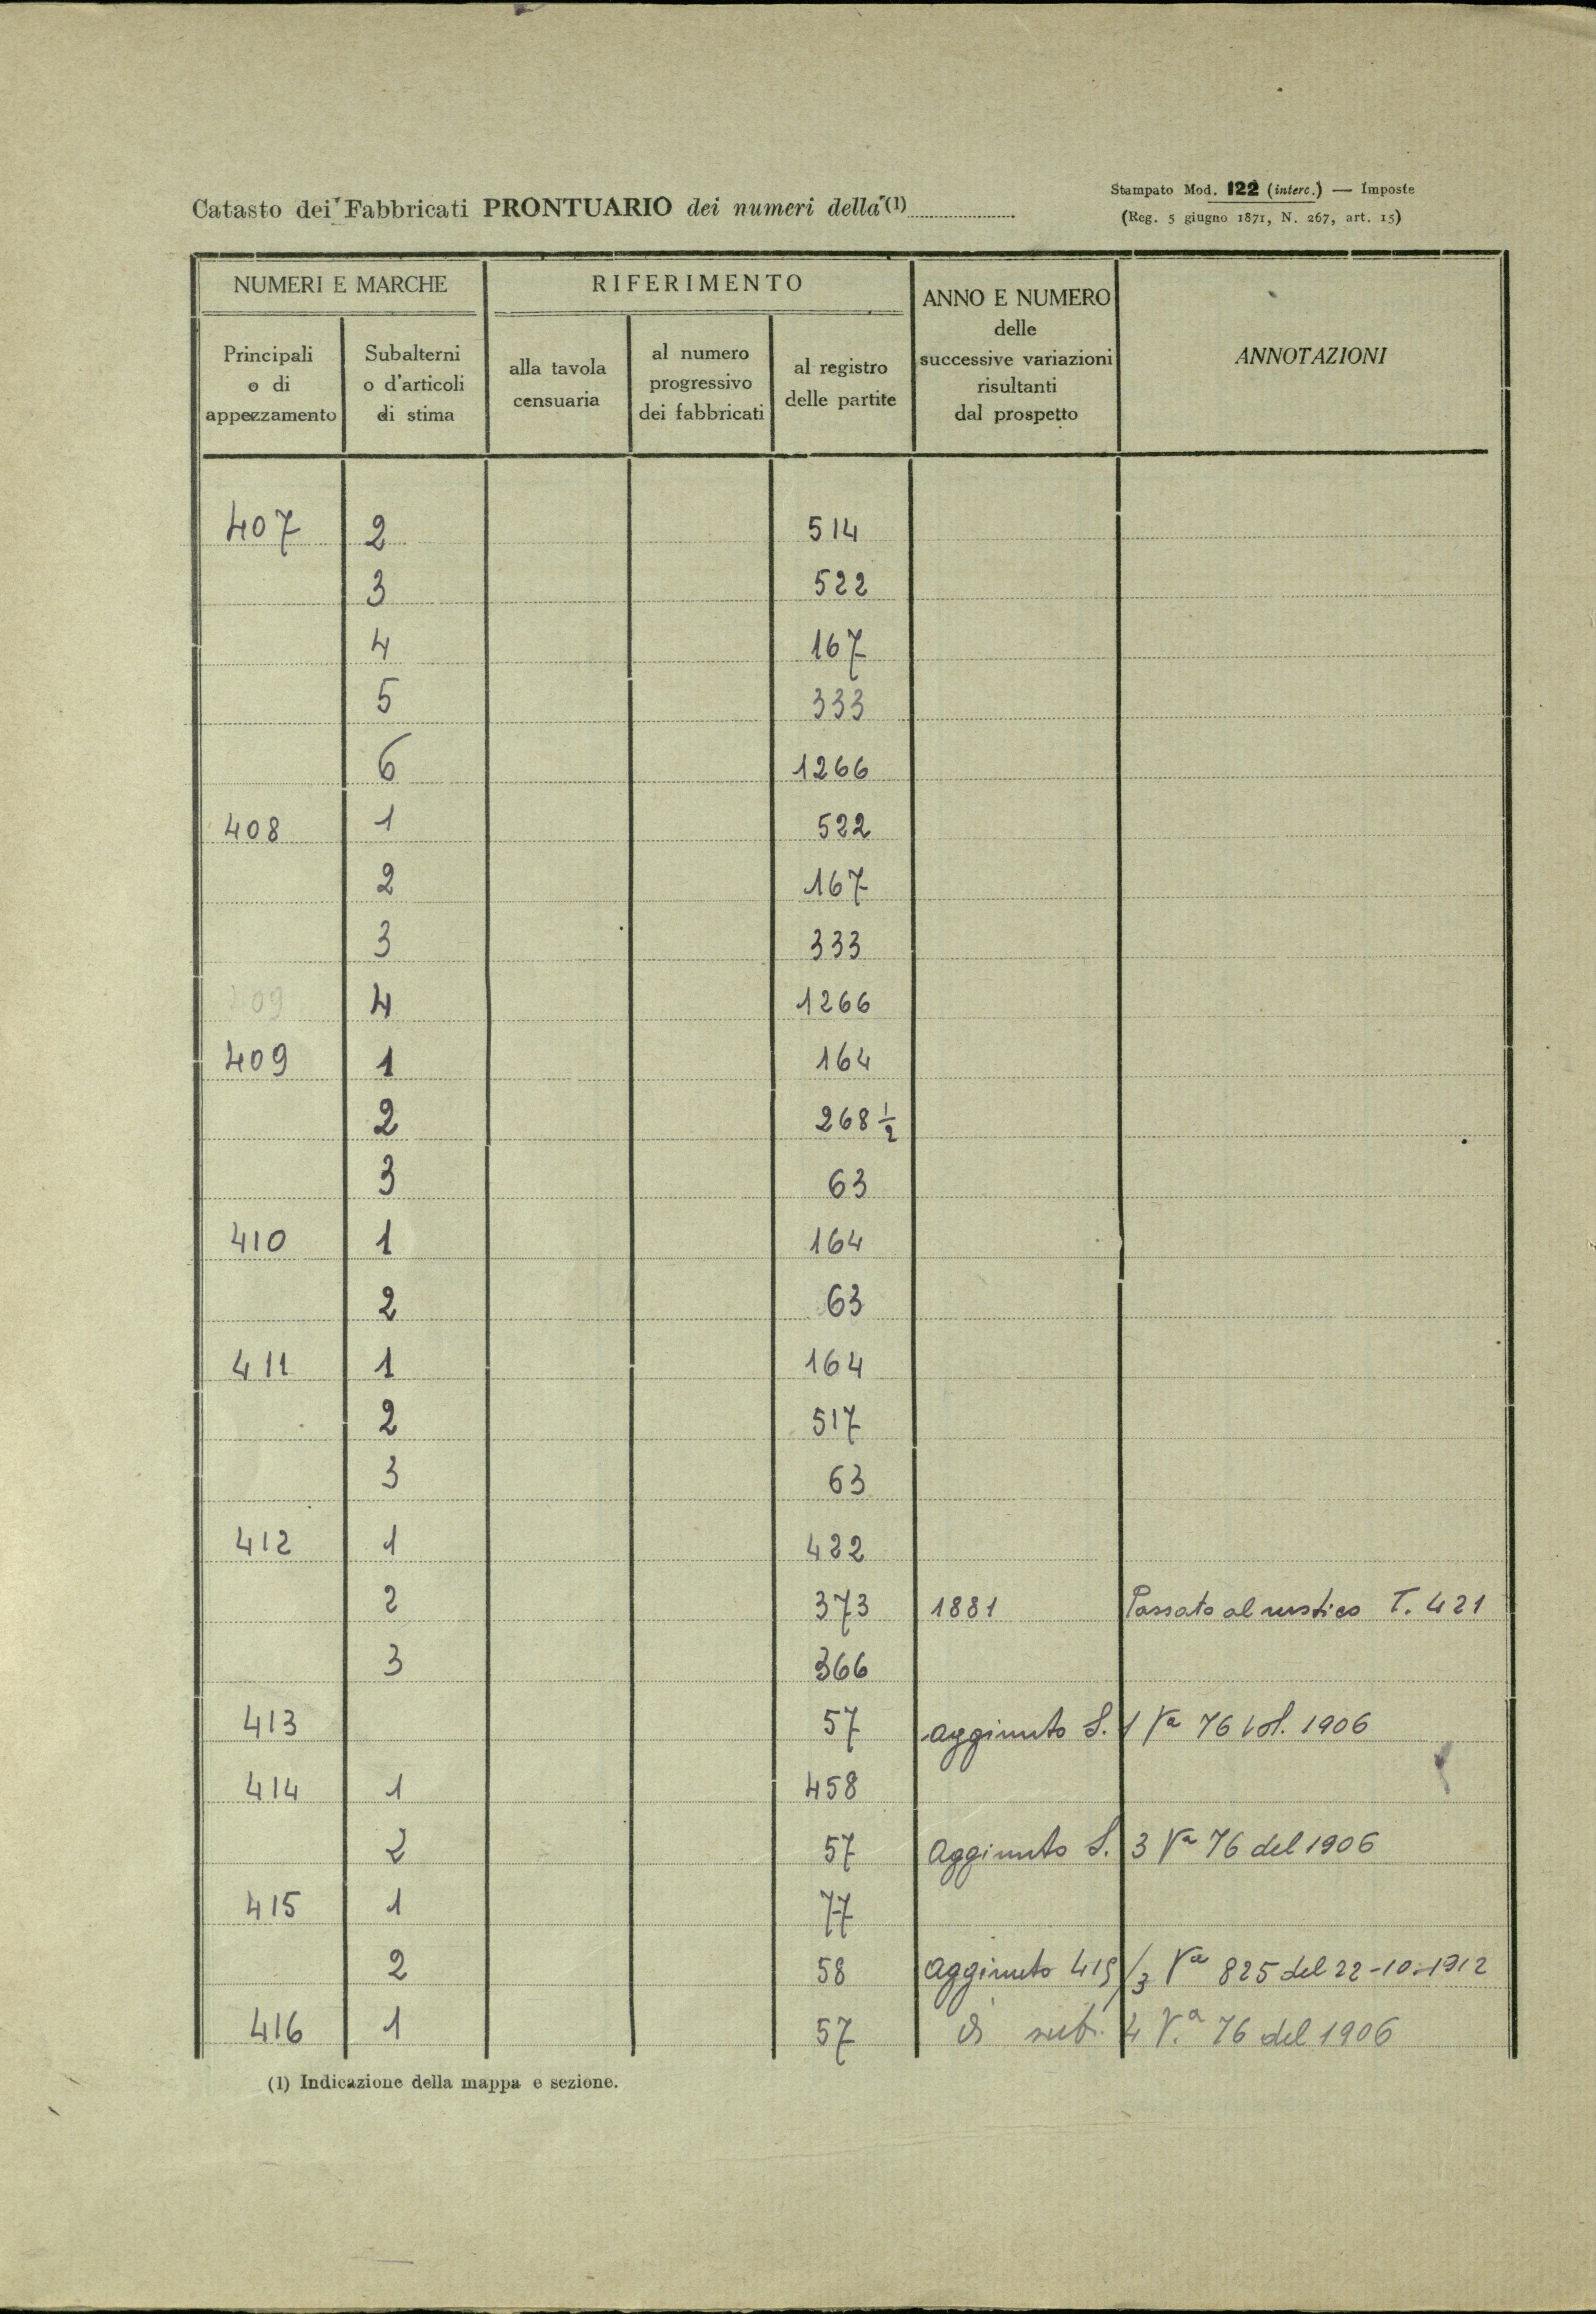 Catasto dei Fabbricati PRONTUARIO dei numeri della (1)
Stampato Mod. 122 (interc.) — Imposte
(Reg. 5 giugno 1871, N. 267, art. 15)
NUMERI E MARCHE
RIFERIMENTO
ANNO E NUMERO
delle
successive variazioni
risultanti
dal prospetto
ANNOTAZIONI
Principali
o di
appezzamento
Subalterni
o d'articoli
di stima
alla tavola
censuaria
al numero
progressivo
dei fabbricati
al registro
delle partite
407 2 514
3 522
4 167
5 333
6 1266
408 1 522
2 167
3 333
409 4 1266
409 1 164
2 268 1/2
3 63
410 1 164
2 63
411 1 164
2 517
3 63
412 1 422
2 373 1881 Passato al rustico T. 421
3 366
413 57 aggiunto S. 1 Va 76 1906
414 1 458
2 57 Aggiunto S. 3 Va 76 del 1906
415 1 77
2 58 Aggiunto 415/3 Va 825 del 22-10-1912
416 1 57 sub. 4 V.a 76 del 1906
(1) Indicazione della mappa e sezione.